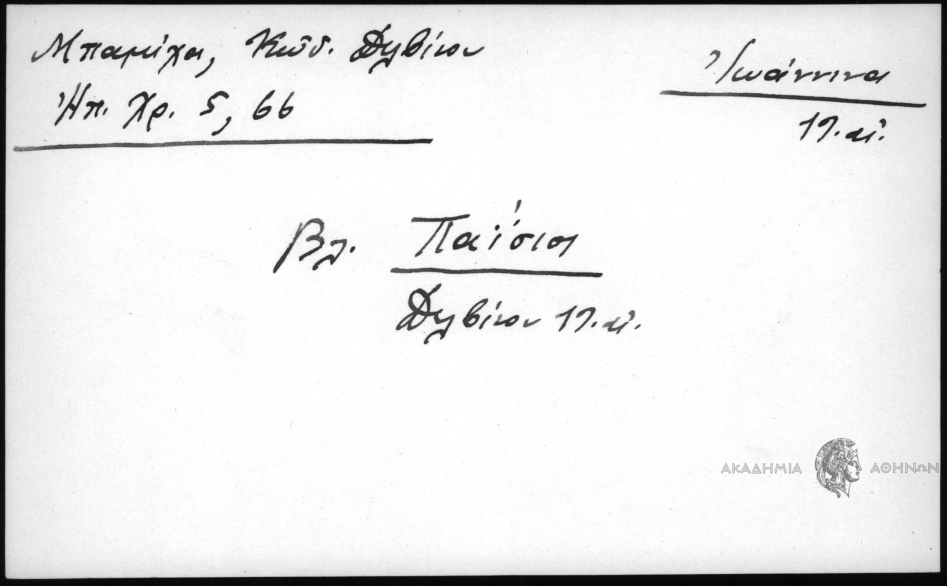 Μπαμίχα, Κώδ. Δηλβίνου
Ἠπ. Χρ. 5, 66
Ἰωάννινα
17. αἰ.
Βλ. Παΐσιοι
Δηλβίνου 17. αἰ.
ΑΚΑΔΗΜΙΑ ΑΘΗΝΩΝ